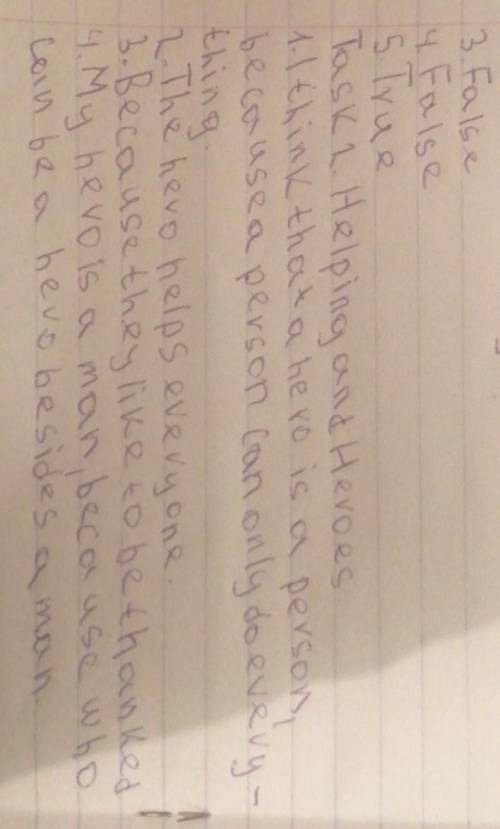 3. False
4. False
5. True
Task 2. Helping and Heroes.
1. I think that a hero is a person,
because a person can only do every-
thing.
2. The hero helps everyone.
3. Because they like to be thanked
4. My hero is a man, because who
can be a hero besides a man.